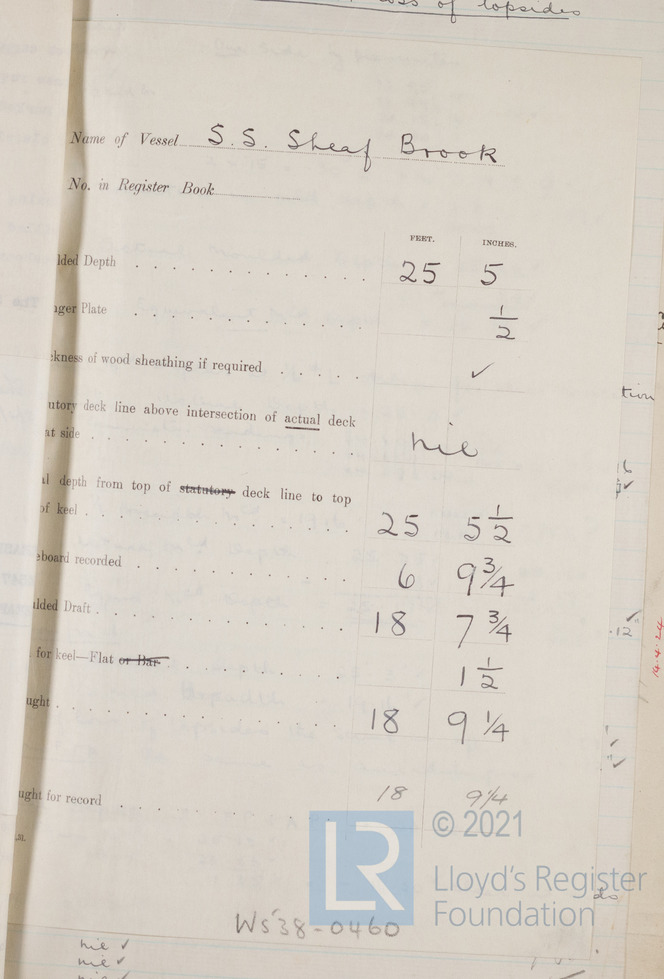 of topsides
Name of Vessel S.S. Sheaf Brook
No. in Register Book
FEET. INCHES.
lded Depth 25 5
ger Plate 1/2
kness of wood sheathing if required ✓
utory deck line above intersection of actual deck
at side nil
l depth from top of statutory deck line to top
of keel 25 5 1/2
eboard recorded 6 9 3/4
lded Draft 18 7 3/4
for keel—Flat or Bar 1 1/2
ught 18 9 1/4
ught for record 18 9 1/4
tion
16
12 ✓
14.4.24
LR
© 2021
Lloyd's Register
Foundation
ds
WS38-0460
nil ✓
nil ✓
nil ✓